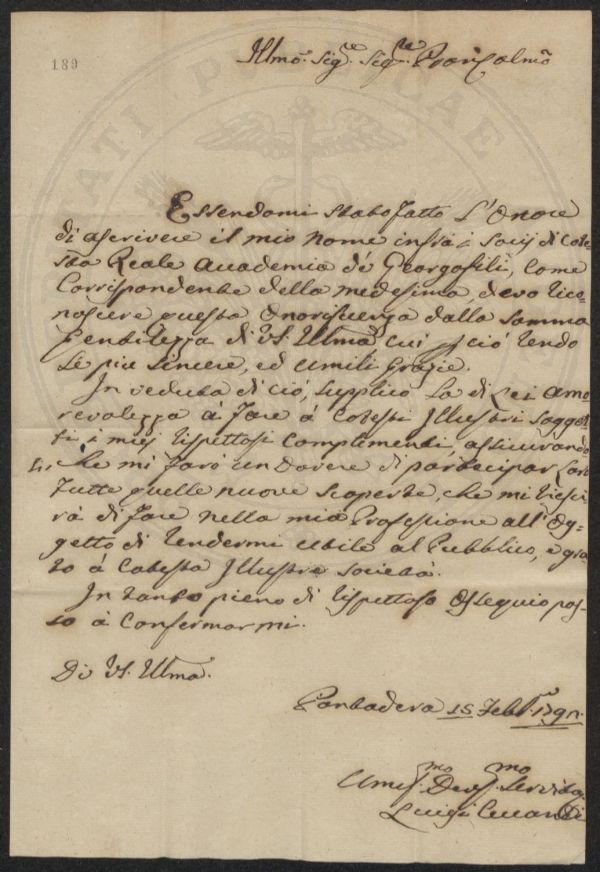 189
Illmo. Sigre. Sigre. Pron Colmo
Essendomi stato fatto L'Onore
di ascrivere il mio nome infra i Socij di Cote
sta Reale Accademia dé Georgofili, Come
Corrispondente della medesima, devo rico-
noscere questa Onorificenza dalla Somma
gentilezza di VS. Illma cui p ciò rendo
Le piu Sincere, ed umili grazie.
In veduta di ció, supplico La di Lei amo
revolezza á fare á Cotesti Illustri Sogget
ti i miej rispettosi Complimenti, assicurando
Li, che mi faró un Dovere di partecipar Loro
tutte quelle nuove scoperte, che mi riesci
rá di fare nella mia Professione all'Og-
getto di rendermi utile al Pubblico, e gra
to á Cotesta Illustre Societá.
In tanto pieno di rispettoso Ossequio pos-
so á Confermarmi.
Di VS. Illma.
Pontadera 15 Febbr.
Umo. Devmo. Servito
Luigi
PUBLICAE